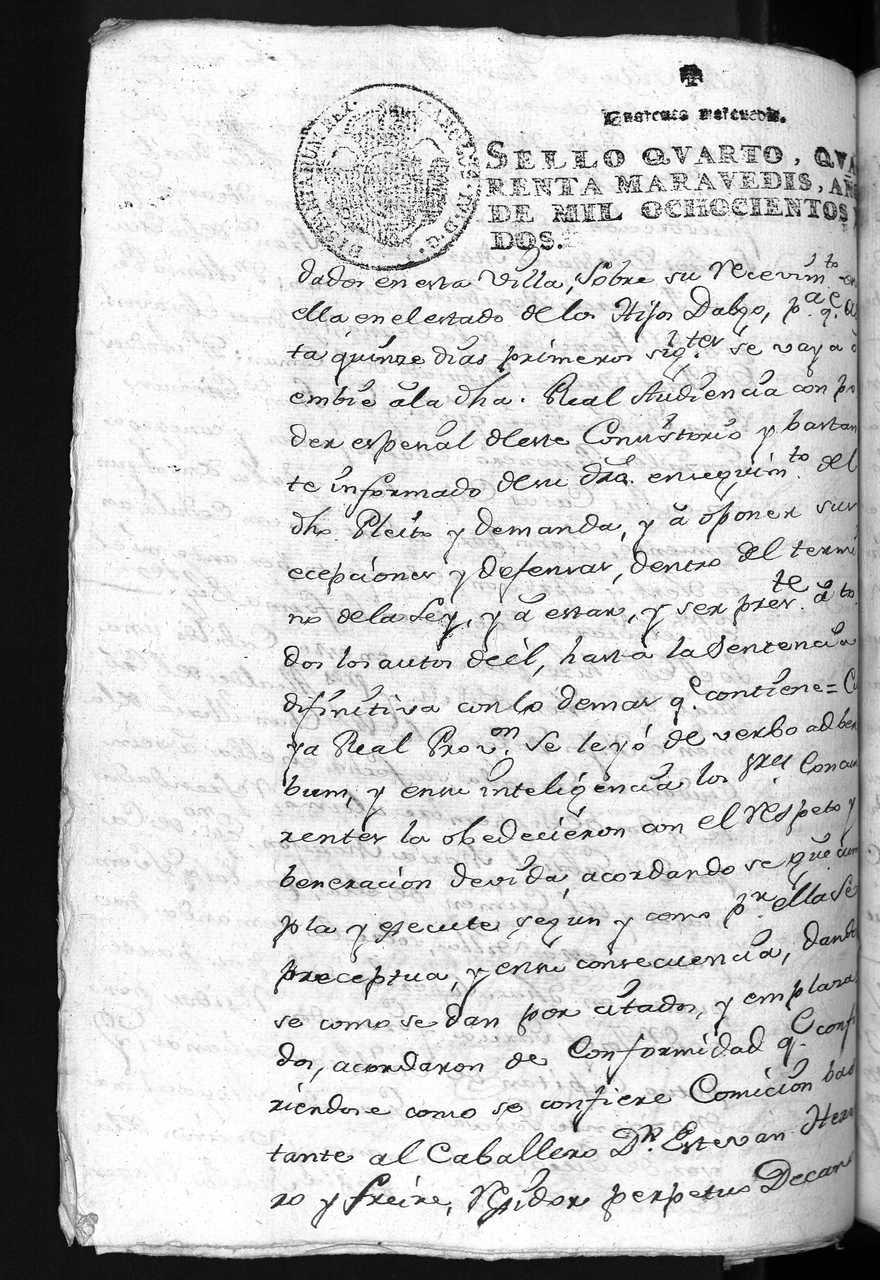 Quarenta maravedis.
CAROLUS·IV·D·G· HISPANIARUM REX·
SELLO QVARTO, QVA
RENTA MARAVEDIS, AÑ
DE MIL OCHOCIENTOS
DOS.
dados en esta Villa, sobre su recevim.to en
ella en el estado de los Hijos Dalgo, p.a q.e
ta quinze dias primeros sig.tes se vaya ô
embie âla dha. Real Audiencia con po
der espesial deeste Consistorio y bastan
te informado desu dro. enseguim.to del
dho. Pleito y demanda, y â oponer sus
ecepciones y defensas, dentro del termi
no dela Ley, y â estar, y ser pres.te â to
dos los autos deél, hasta la Sentencia
difinitiva con lo demas q.e contiene = Cu
ya Real Prov.on se leyó de verbo ad ber
bum, y ensu inteligencia los sres Concur
rentes la obedecieron con el respeto y
beneracion devida acordando se que cum
pla y egecute segun y como p.r ella se
preceptua, y ensu consecuencia, dando
se como se dan por citados, y emplaza
dos, acordaron de Conformidad q.e confi
riendose como se confiere Comicion bas
tante al Caballero D.n Estevan Herre
ro y Freire, rexidor perpetuo Decano